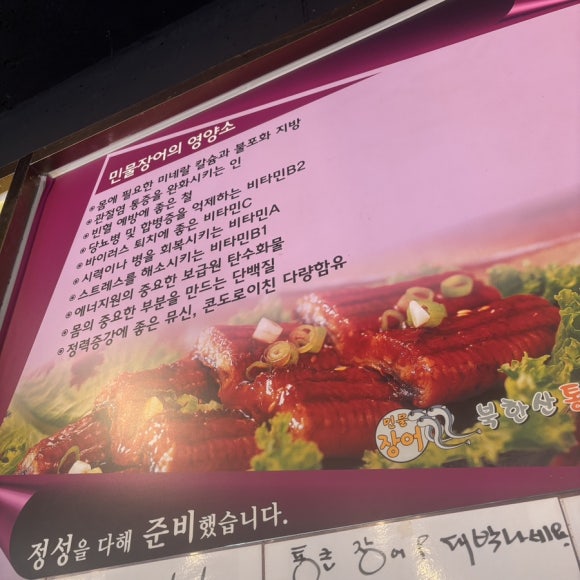 민물장어의 영양소
몸에 필요한 미네랄 칼슘과 불포화 지방
관절염 통증을 완화시키는 인
빈혈 예방에 좋은 철
당뇨병 및 합병증을 억제하는 비타민B2
바이러스 퇴치에 좋은 비타민C
시력이나 병을 회복시키는 비타민A
스트레스를 해소시키는 비타민B1
에너지원의 중요한 보급원 탄수화물
몸의 중요한 부분을 만드는 단백질
정력증강에 좋은 뮤신, 콘도로이친 다량함유
민물
장어
북한산
정성을 다해 준비했습니다.
통큰 장어 대박나세요